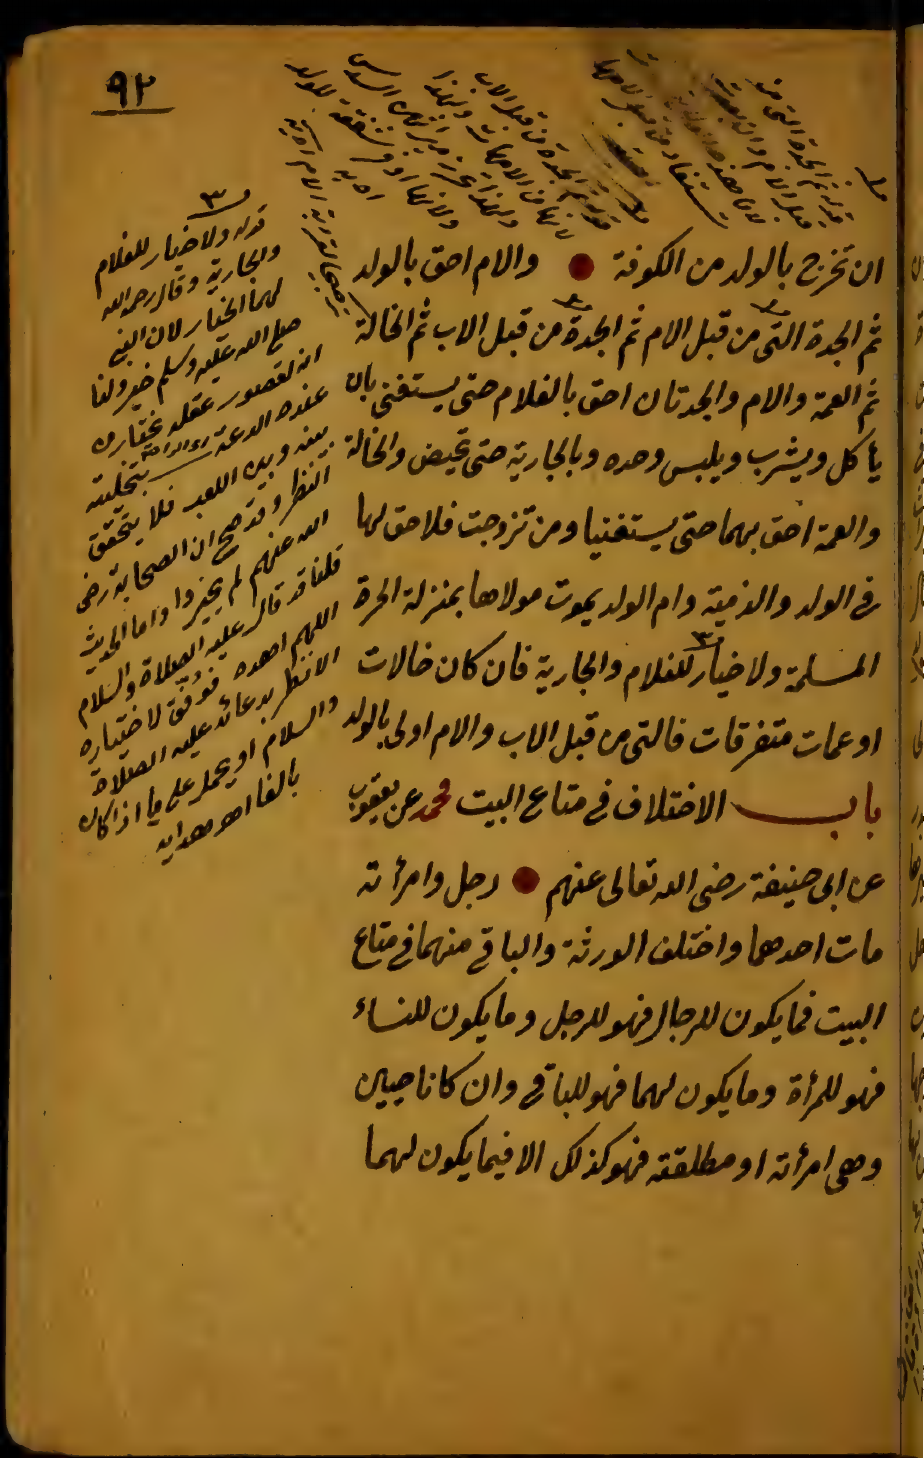 ٩٢
ان تخرج بالولد من الكوفة والام احق بالولد
ثم الجدة التى من قبل الام ثم الجدة من قبل الاب ثم الخالة
ثم العمة والام والجدتان احق بالغلام حتى يستغنى بان
يأكل ويشرب ويلبس وحده وبالجارية حتى تحيض والخالة
والعمة احق بهما حتى يستغنيا ومن تزوجت فلا حق لها
فى الولد والذمية وام الولد يموت مولاها بمنزلة الحرة
المسلمة ولا خيار للغلام والجارية فان كان خالات
او عمات متفرقات فالتى من قبل الاب والام اولى بالولد
باب الاختلاف فى متاع البيت محمد عن يعقوب
عن ابى حنيفة رضى الله تعالى عنهم رجل وامرأته
مات احدهما واختلف الورثة والباقى منهما فى متاع
البيت فما يكون للرجال فهو للرجل وما يكون للنساء
فهو للمرأة وما يكون لهما فهو للباقى وان كانا حيين
وهى امرأته او مطلقته فهو كذلك الا فيما يكون لهما
٣
قوله ولا خيار للغلام
والجارية وقال رحمه الله
لهما الخيار لان النبى
صلى الله عليه وسلم خير ولنا
انه لقصور عقله يختار من
عنده الدعة بتخليته
بينه وبين اللعب فلا يتحقق
النظر وقد صح ان الصحابة رضى
الله عنهم لم يخيروا واما الحديث
قلنا قد قال عليه الصلاة والسلام
اللهم اهده فوفق لاختياره
الانظر بدعائه عليه الصلاة
والسلام او يحمل على ما اذا كان
بالغا اهـ هدايه